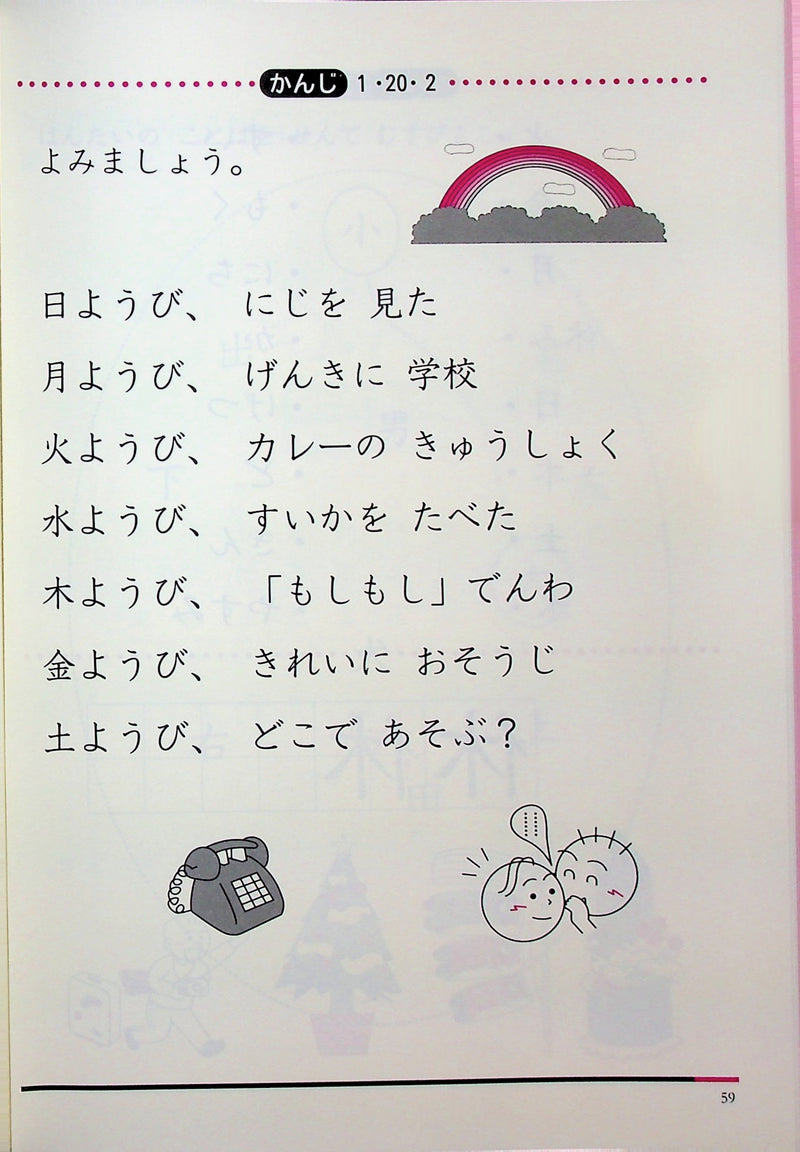 かんじ 1・20・2
よみましょう。
日ようび、 にじを 見た
月ようび、 げんきに 学校
火ようび、 カレーの きゅうしょく
水ようび、 すいかを たべた
木ようび、 「もしもし」でんわ
金ようび、 きれいに おそうじ
土ようび、 どこで あそぶ？
59